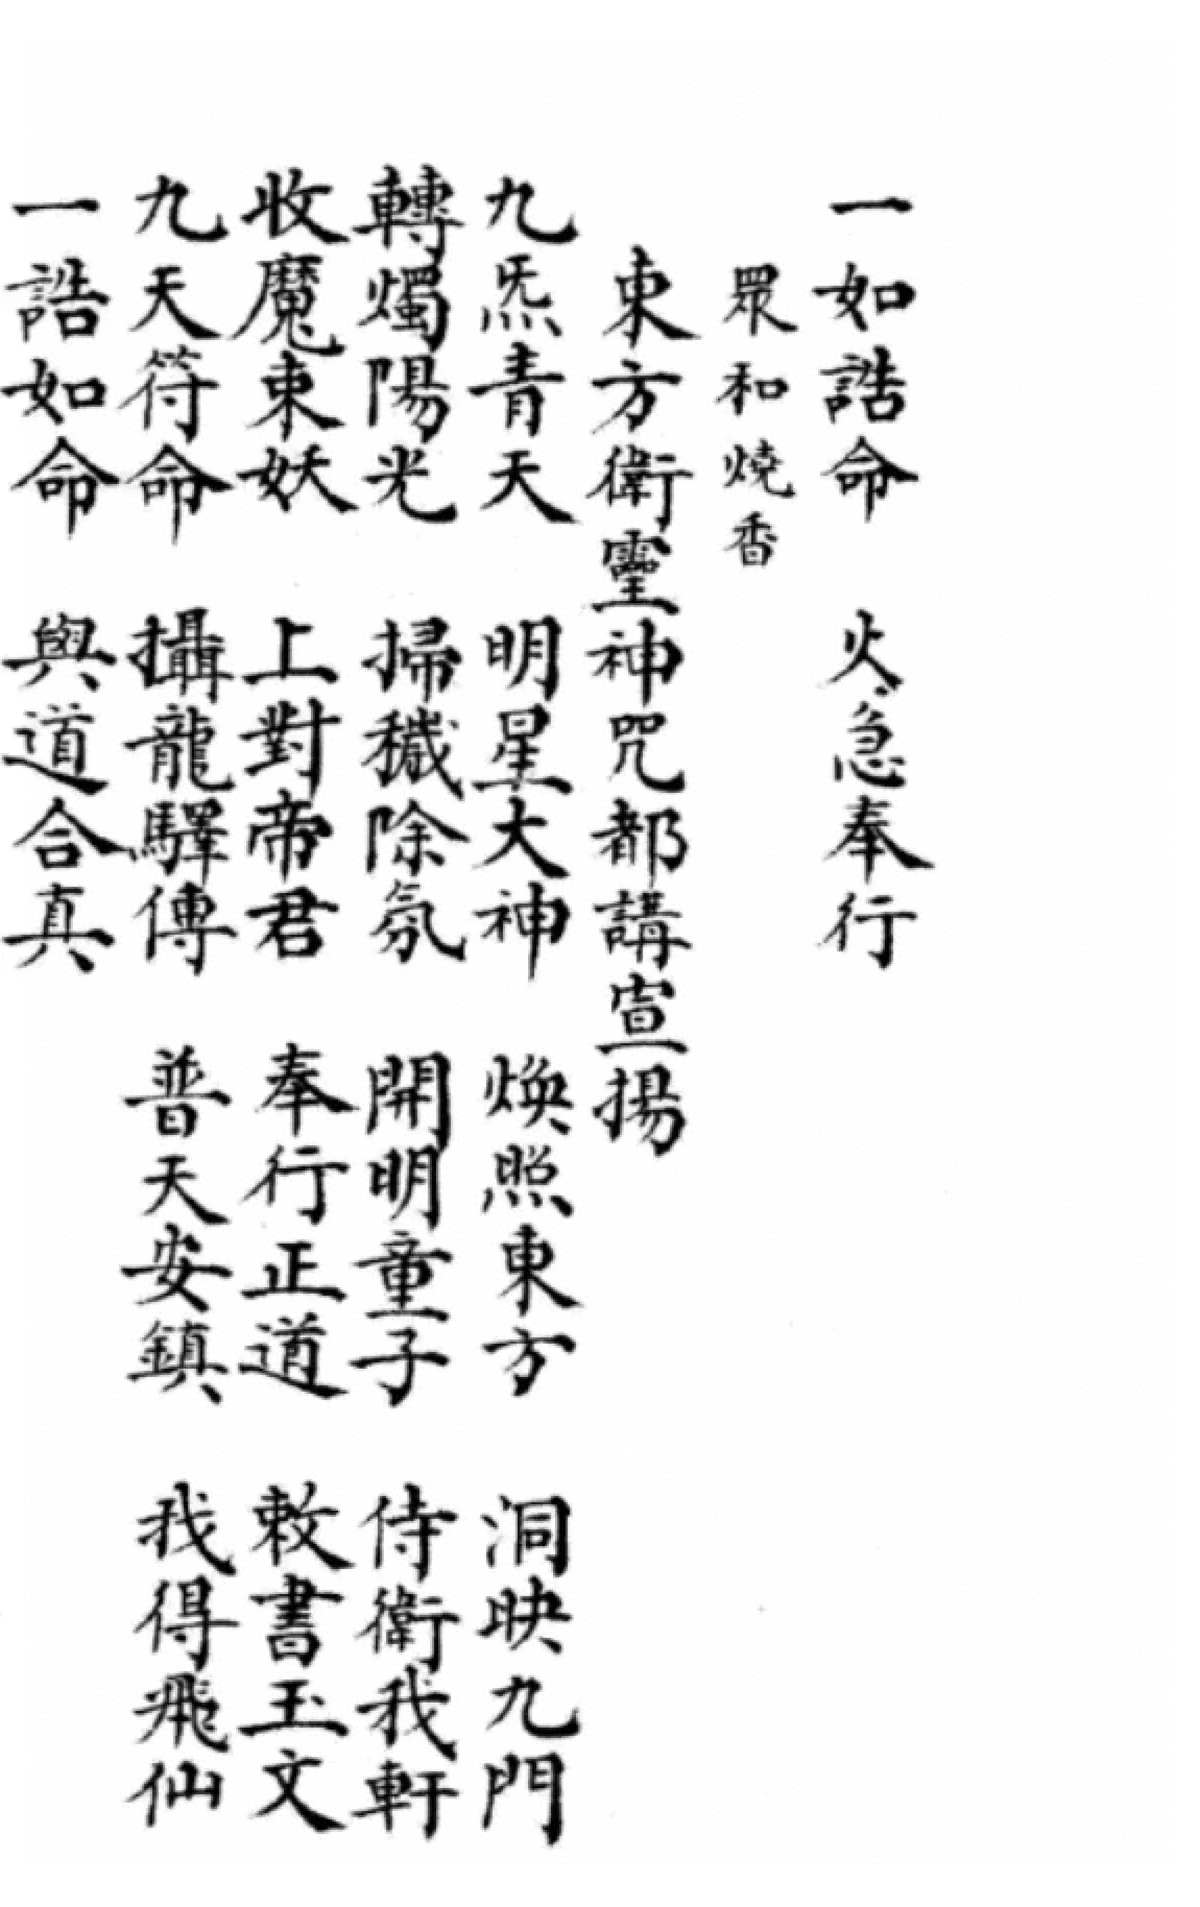 一如誥命　火急奉行
眾和燒香
東方衛靈神咒都講宣揚
九炁青天　明星大神　煥照東方　洞映九門
轉燭陽光　掃穢除氛　開明童子　侍衛我軒
收魔束妖　上對帝君　奉行正道　敕書玉文
九天符命　攝龍驛傳　普天安鎮　我得飛仙
一誥如命　與道合真